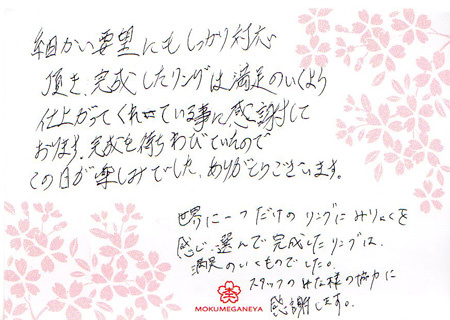 細かい要望にもしっかり対応
頂き、完成したリングは満足のいくよう
仕上がってくれている事に感謝して
おります。完成を待ちわびていたので
この日が楽しみでした、ありがとうございます。
世界に一つだけのリングにみりょくを
感じ、選んで完成したリングは、
満足のいくものでした。
スタッフのみな様の協力に
感謝します。
MOKUMEGANEYA